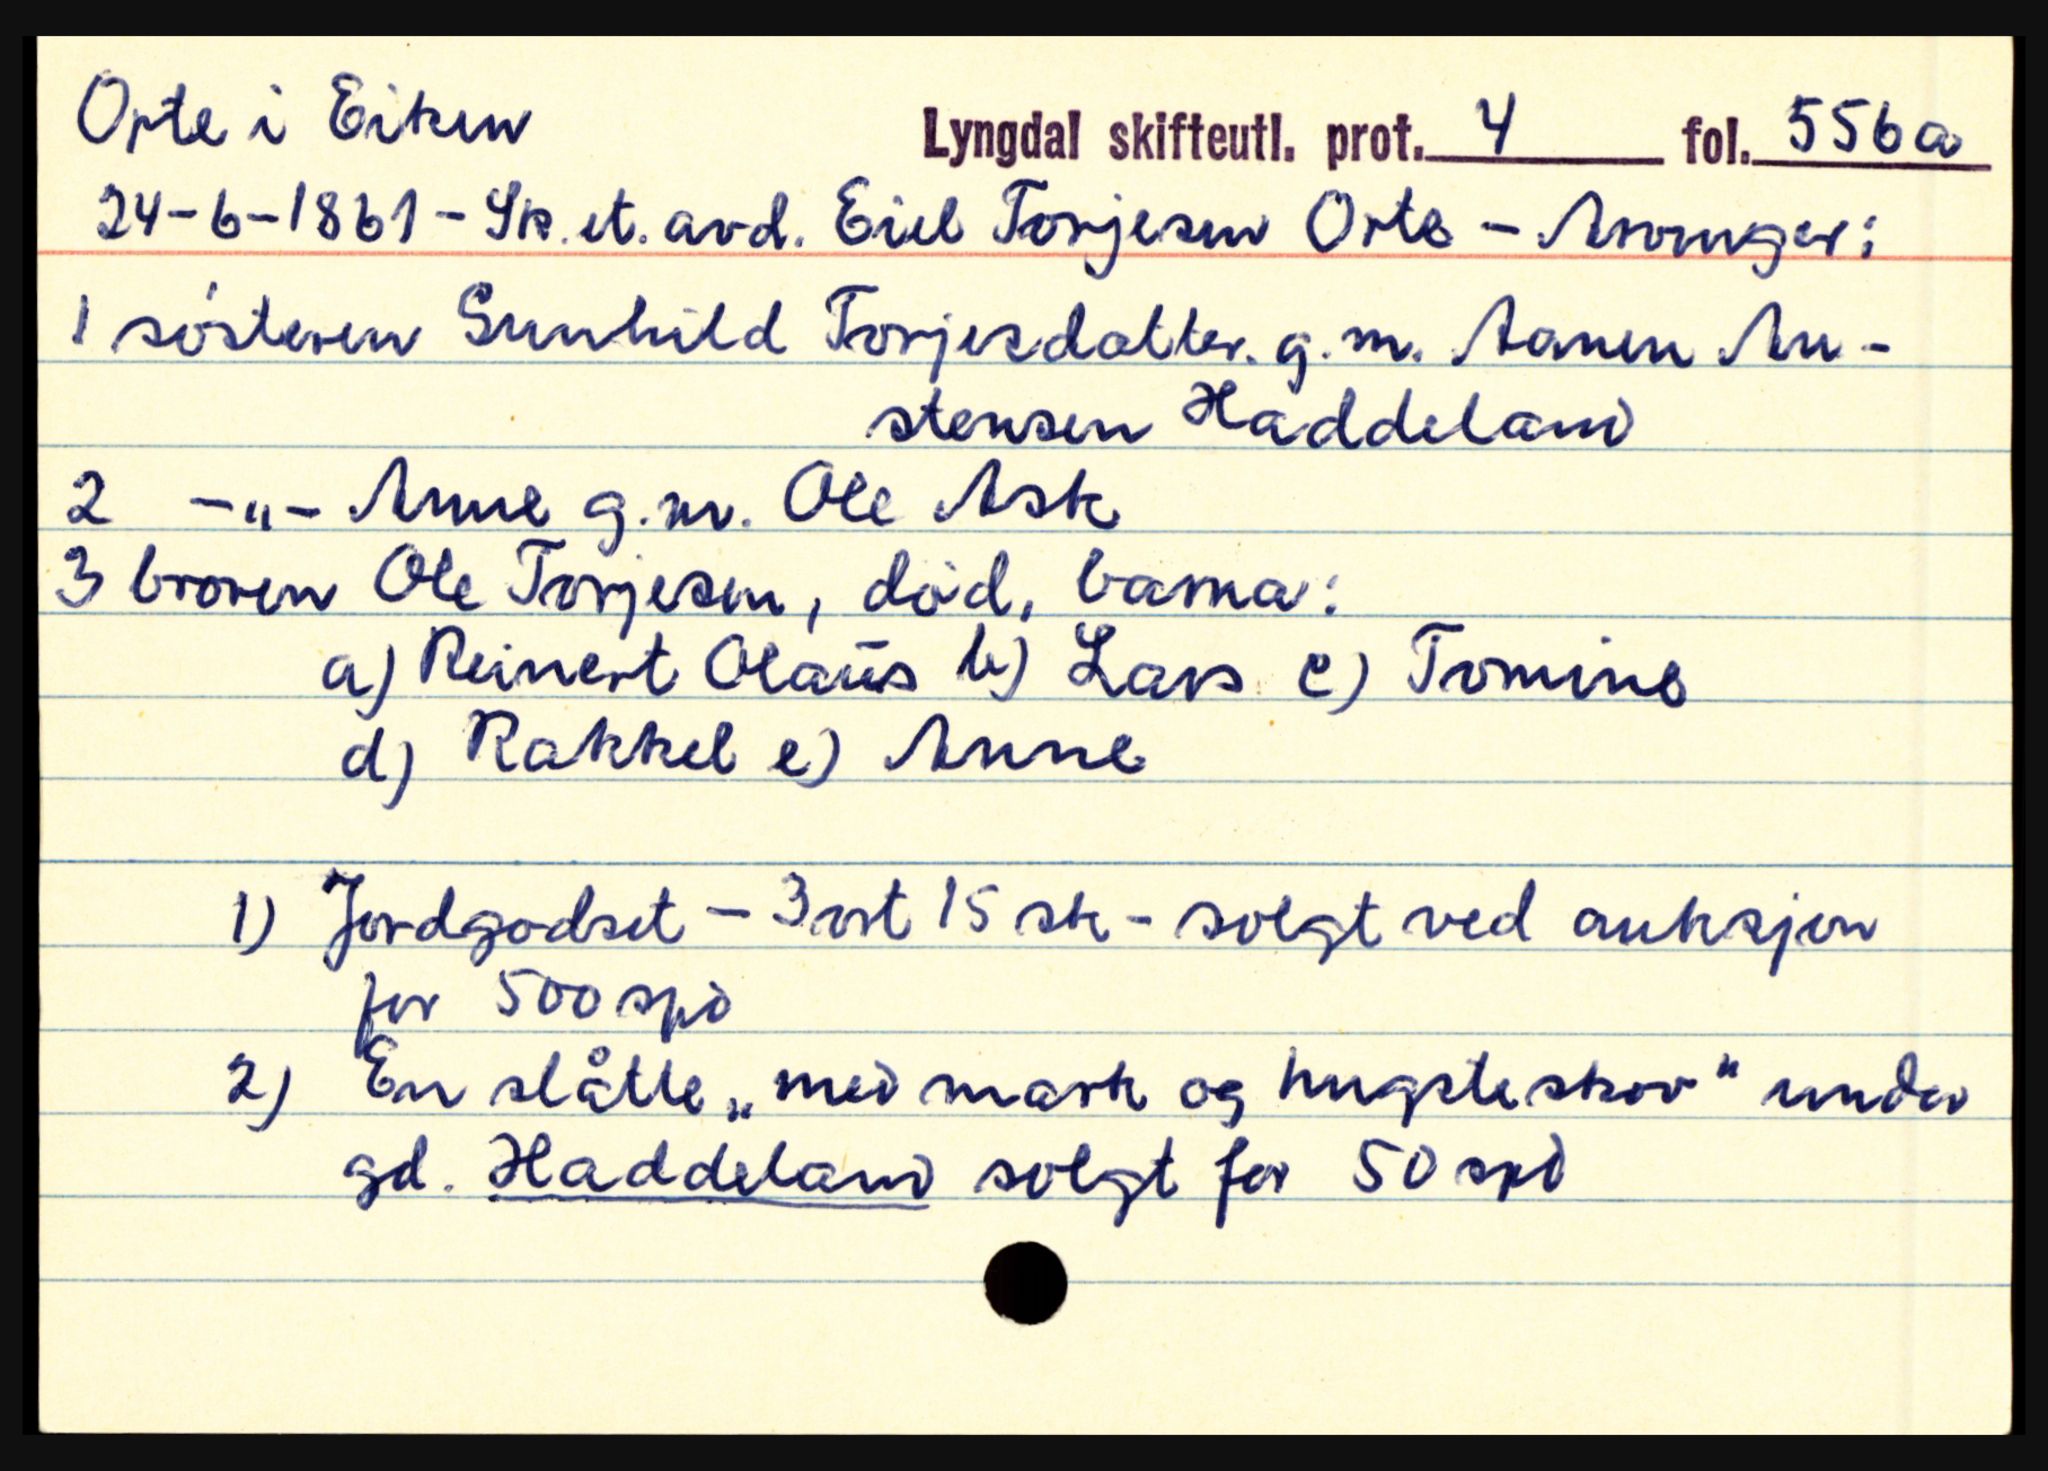 Orte i Eiken Lyngdal skifteutl. prot. 4 fol. 556a
24-6-1861 - Sk. et. avd. Eiel Torjesen Orte - Arvinger:
1 søsteren Gunhild Torjesdatter. g.m. Aanen An-
stensen Haddeland
2 -"- Anne g.m. Ole Ask
3 broren Ole Torjesen, død, barna:
a) Reinert Olaus b) Lars c) Tomine
d) Rakkel e) Anne
1) Jordgodset - 3 ort 15 sk - solgt ved auksjon
for 500 spd
2) En slåtte „med mark og hugsteskov" under
gd. Haddeland solgt for 50 spd